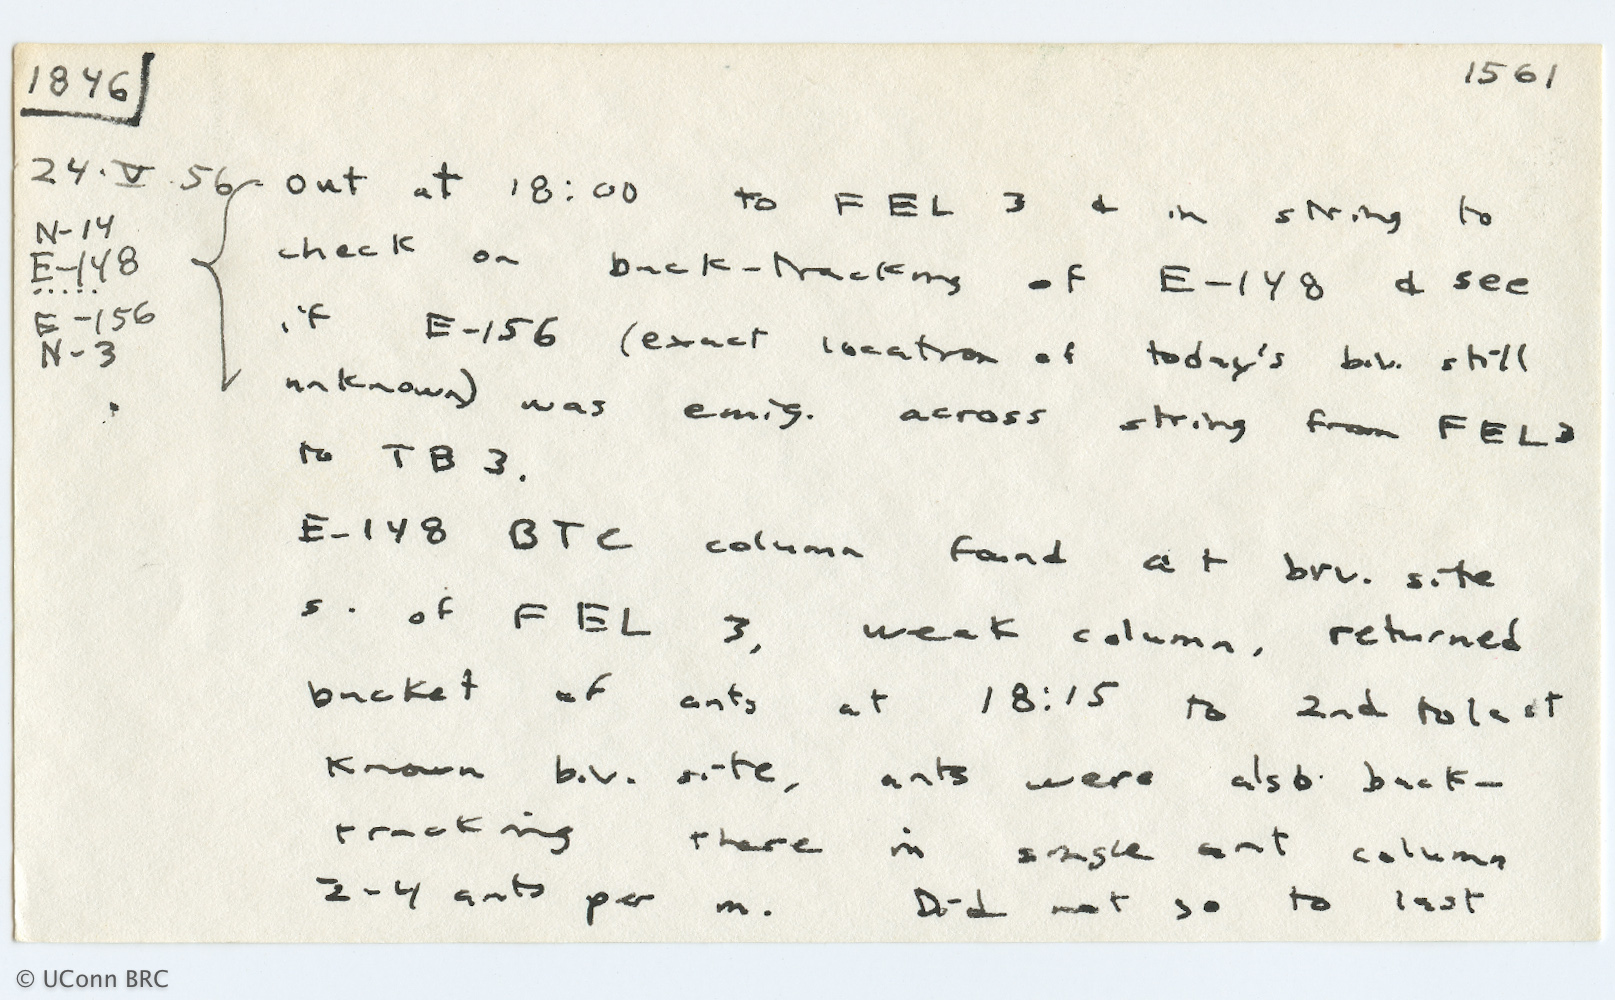 1846
1561
24.V.56 out at 18:00 to FEL 3 & in string to
N-14
check on back-tracking of E-148 & see
E-148
if E-156 (exact location of today's biv. still
E-156
unknown) was emig. across string from FEL3
N-3
to TB 3.
E-148 BTC column found at biv. site
s. of FEL 3, weak column, returned
bucket of ants at 18:15 to 2nd to last
known biv. site, ants were also back-
tracking there in single ant column
2-4 ants per m. Did not go to last
© UConn BRC